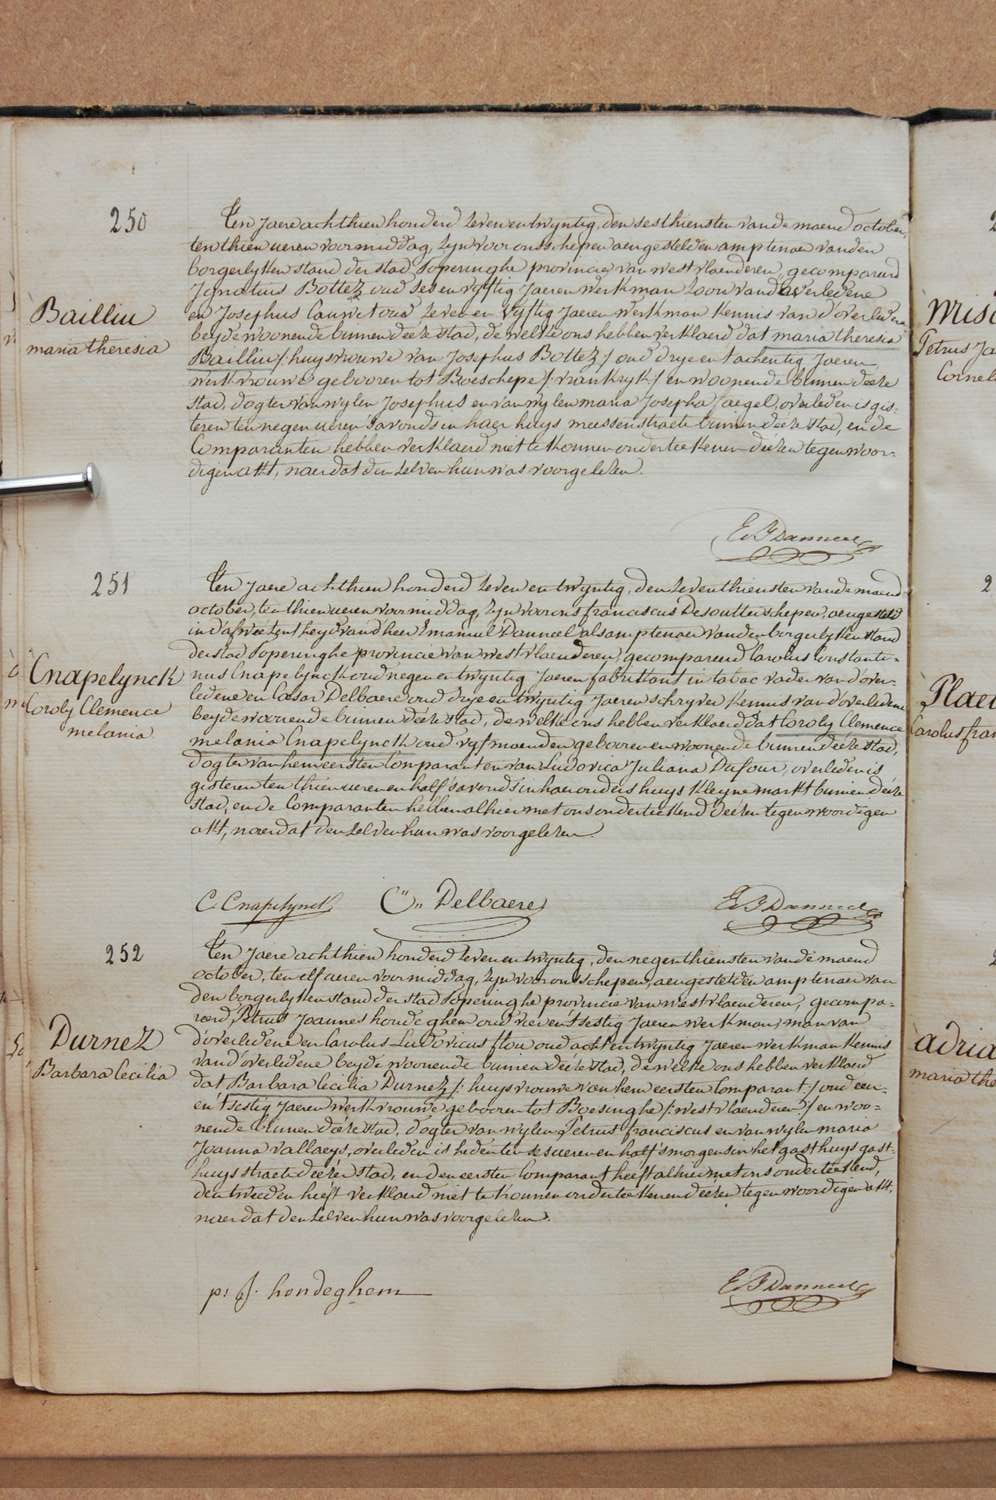 250
Bailliu
maria theresia
Ten Jaere achthien honderd zeven en twyntig, den sesthiensten van de maend october,
ten thien ueren voormiddag, zyn voor ons schepen aengestelden amptenaer van den
borgerlyken stand der stad Poperinghe provincie van westvlaenderen, gecompareerd
Ignatius Bottez oud seven vyftig Jaeren werkman zoon van d'overledene
en Josephus Cauwet oud zeven en vyftig Jaeren werkman kennis van d'overledene
beyde woonende binnen deéze stad, de welke ons hebben verklaerd dat maria theresia
Bailliu / huysvrouwe van Josephus Bottez / oud drye en tachentig Jaeren
werkvrouwe gebooren tot Boeschepe / vrankryk / en woonende binnen deéze
stad, dogter van wylen Josephus en van wylen maria Josepha Jaegel, overleden is gis-
teren ten negen ueren s'avonds in haer huys meessenstraete binnen deéze stad, en de
Comparanten hebben verklaerd niet te konnen onderteekenen deézen tegenwoor-
digen akt, naer dat den zelven hun was voorgelezen.
E I Danneel
251
Cnapelynck
Coroly Clemence
melania
Ten Jaere achthien honderd zeven en twyntig, den zeventhiensten van de maend
october, ten thien ueren voormiddag, zyn voor ons franciscus Desoutter schepen, aengesteld
in d'afweézentheyd van d'heer Emanuel Danneel als amptenaer van den borgerlyken stand
der stad Poperinghe provincie van westvlaenderen, gecompareerd Carolus Constanti-
nus Cnapelynck oud negen en twyntig Jaeren fabrikant in tabac vader van d'over-
ledene en Cæsar Delbaere oud drye en twyntig Jaeren schryver kennis van d'overledene
beyde woonende binnen deéze stad, de welke ons hebben verklaerd dat Coroly Clemence
melania Cnapelynck oud vyf maenden gebooren en woonende binnen deéze stad,
dogter van hem eersten Comparant en van Ludovica Juliana Dufour, overleden is
gisteren ten thien ueren en half s'avonds in haer ouders huys kleyne markt binnen deéze
stad, en de Comparanten hebben alhier met ons onderteekend deézen tegenwoordigen
akt, naer dat den zelven hun was voorgelezen.
C. Cnapelynck C.en Delbaere E I Danneel
252
Durnez
Barbara Cecilia
Ten Jaere achthien honderd zeven en twyntig, den negenthiensten van de maend
october, ten elf ueren voormiddag, zyn voor ons schepen, aengestelden amptenaer van
den borgerlyken stand der stad Poperinghe provincie van westvlaenderen, gecompa-
reerd Petrus Joannes hondeghem oud vier en t'sestig Jaeren werkman, man van
d'overledene en Carolus Ludovicus flou oud acht en twyntig Jaeren werkman kennis
van d'overledene beyde woonende binnen deéze stad, de welke ons hebben verklaerd
dat Barbara Cecilia Durnez / huysvrouwe van hem eersten Comparant / oud een-
en t'sestig Jaeren werkvrouwe gebooren tot Boesinghe / westvlaenderen / en woo-
nende binnen deéze stad, dogter van wylen Petrus franciscus en van wylen maria
Joanna Vallaeys, overleden is heden ten ses ueren en half s'morgens in het gasthuys gast-
huys straete deézer stad, en den eersten Comparant heeft alhier met ons onderteekend,
den tweeden heeft verklaerd niet te konnen onderteekenen deézen tegenwoordigen akt,
naer dat den zelven hun was voorgelezen.
p: J. hondeghem E I Danneel
Petrus Ja
Cornel
Carolus fran
adria
maria the